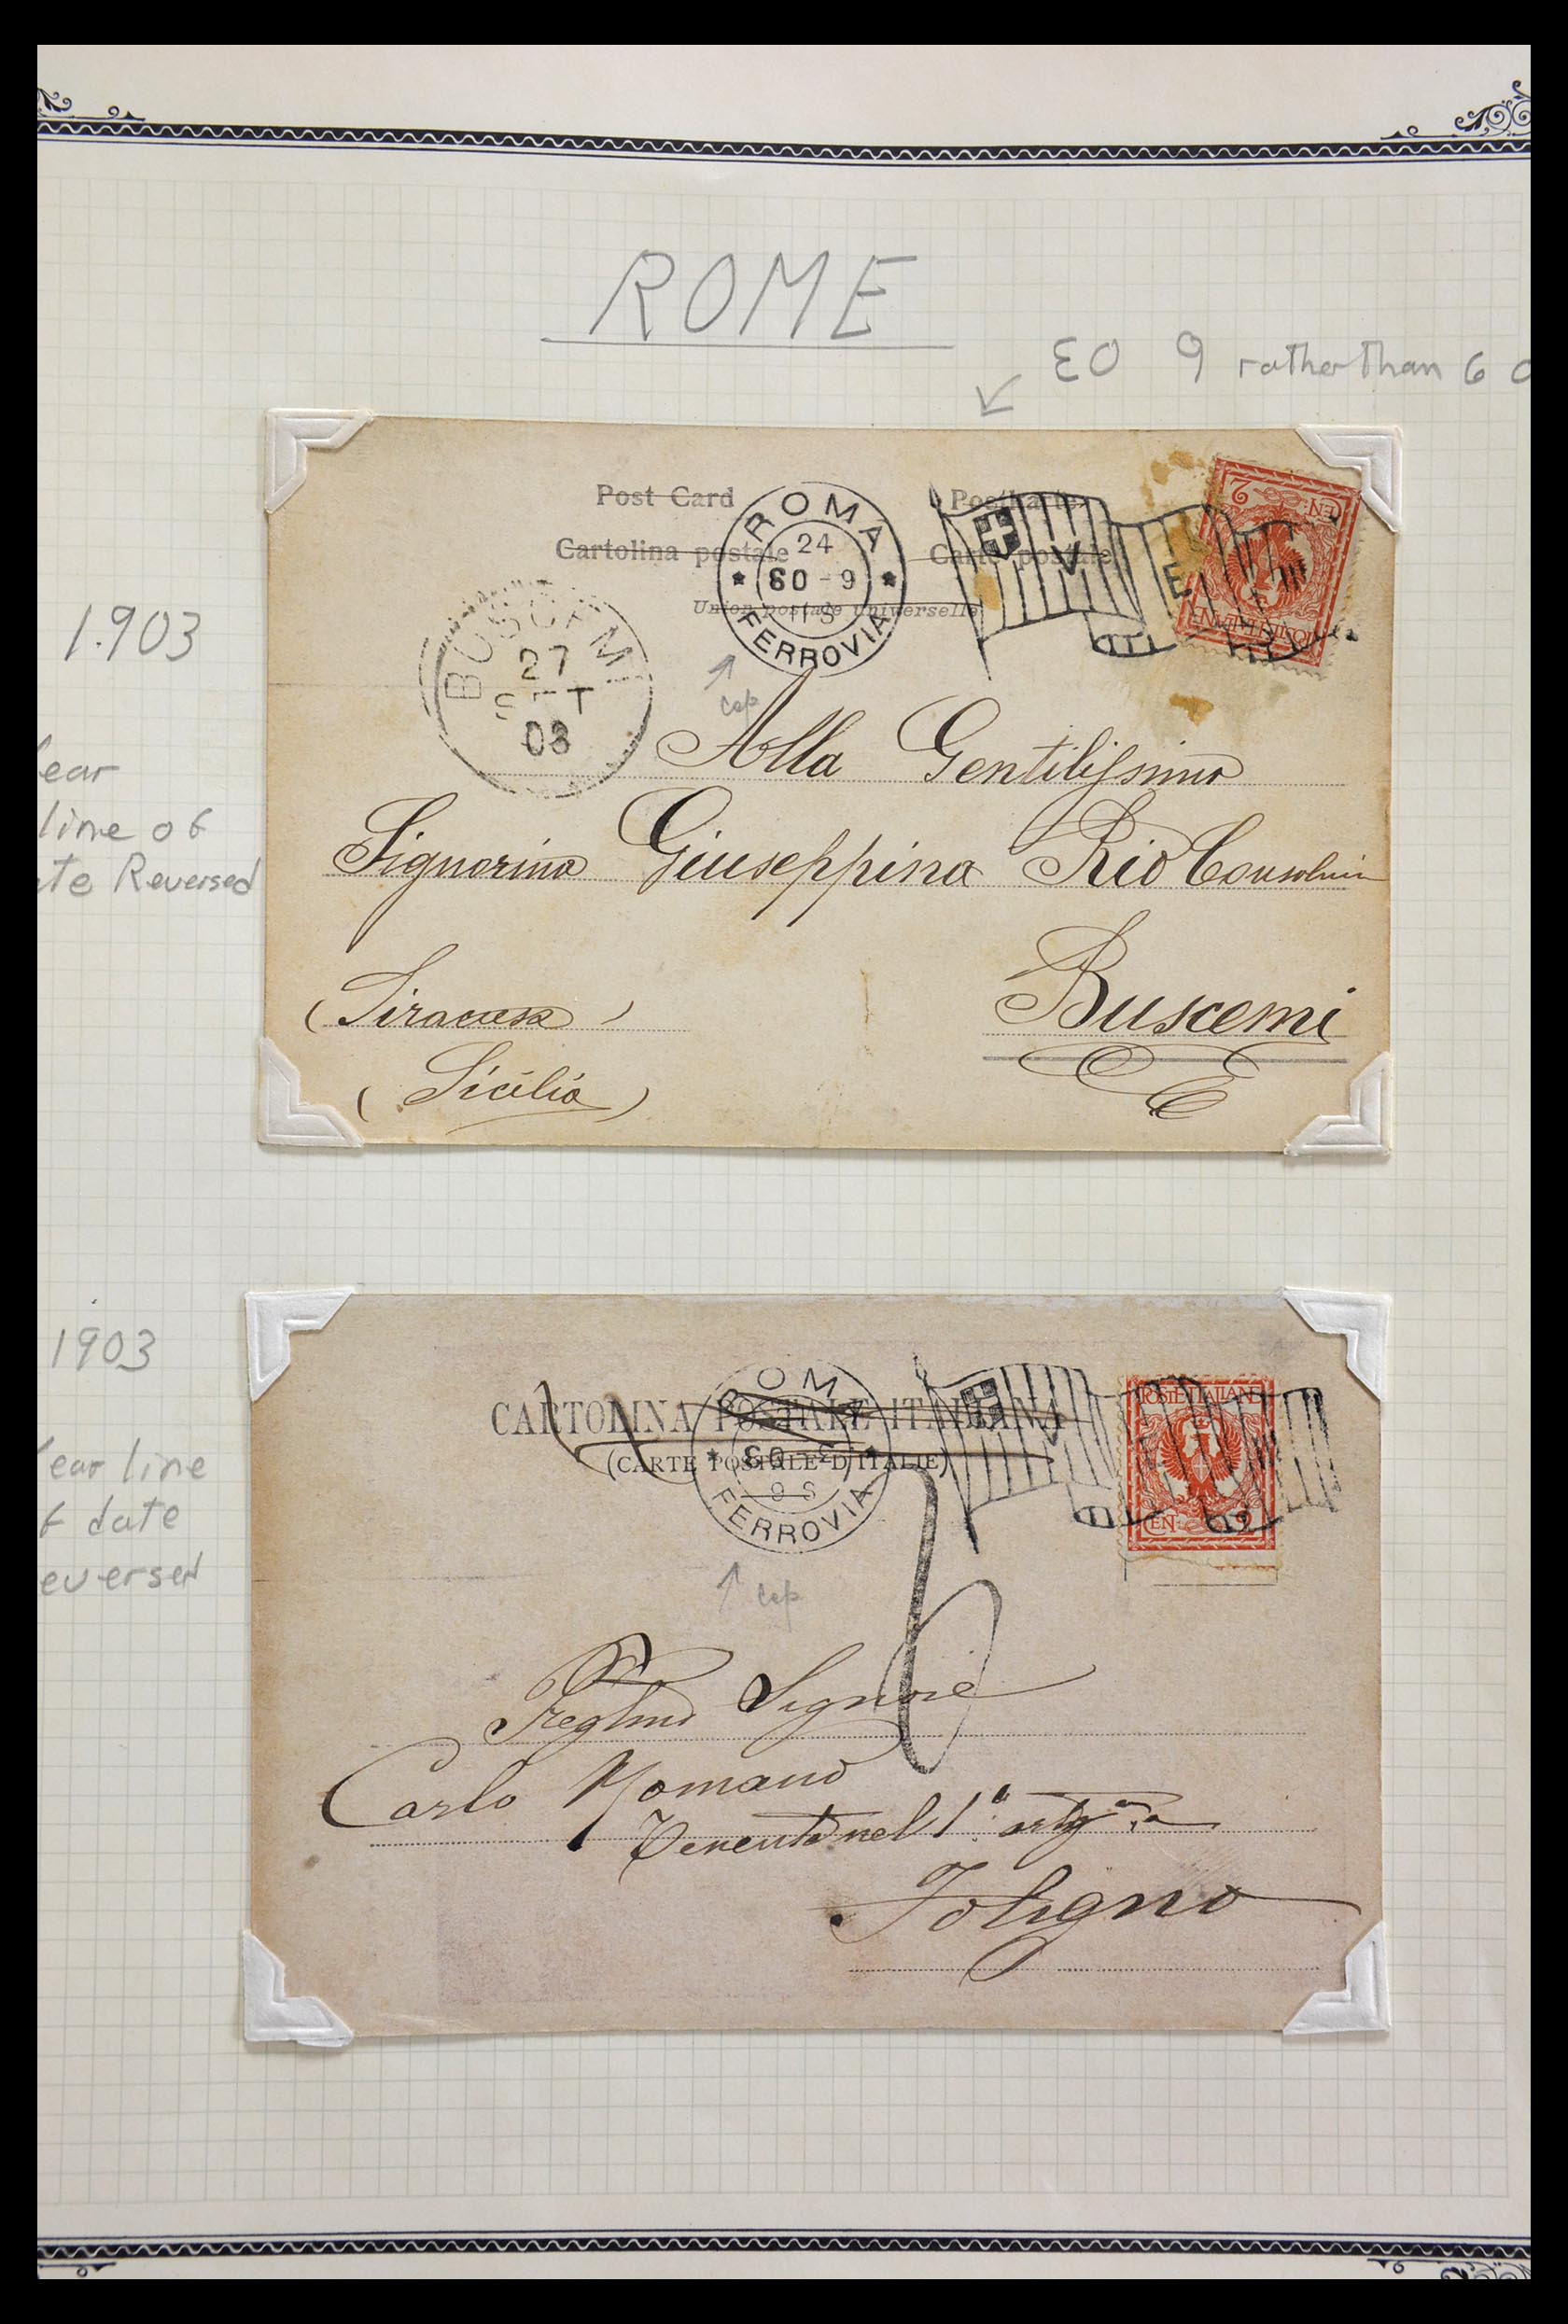 ROME
↙ Ɛ0 9 rather than 6 0
Post Card
Postkarte
Cartolina postale
Carte postale
Union postale universelle
ROMA
24
60-9
11 S
FERROVIA
V E
2 CEN.
POSTE ITALIANE
1903
ear
line of
te Reversed
BUSCEMI
27
SET
03
↗
cap
Alla Gentilissima
Signorina Giuseppina Rio
Buscemi
(Siracusa)
(Sicilia)
1903
ear line
f date
eversed
CARTOLINA POSTALE ITALIANA
(CARTE POSTALE D'ITALIE)
ROMA
9 S
FERROVIA
V
POSTE ITALIANE
CEN. 2
↑ cap
Signore
Carlo Romano
Tenente nel 1°
Foligno